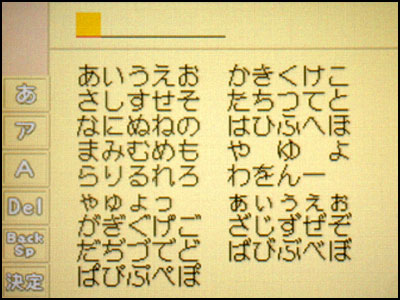 あ
ア
A
Del
Back Sp
決定
あいうえお かきくけこ
さしすせそ たちつてと
なにぬねの はひふへほ
まみむめも や ゆ よ
らりるれろ わをんー
ゃゅょっ ぁぃぅぇぉ
がぎぐげご ざじずぜぞ
だぢづでど ばびぶべぼ
ぱぴぷぺぽ